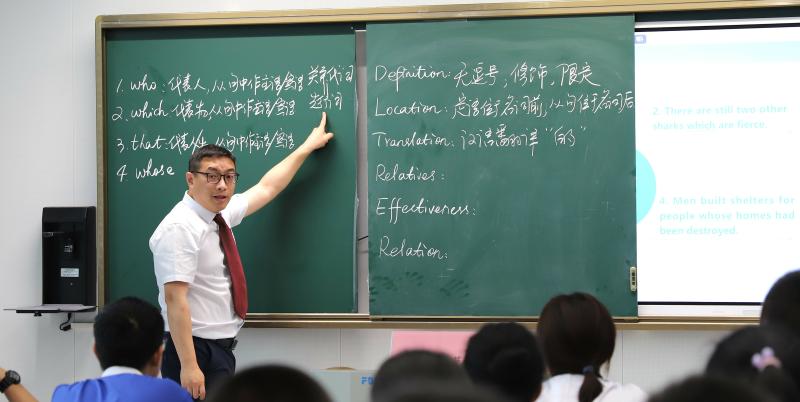 1. who: 代表人, 从句中作主语/宾语 关系代词
2. which: 代表物, 从句中作主语/宾语 先行词
3. that: 代表人/物, 从句中作主语/宾语
4. whose
Definition: 无逗号, 修饰, 限定
Location: 先行词位于从句前, 从句位于名词后
Translation: 汉语需翻译 "的"
Relatives:
Effectiveness:
Relation:
2. There are still two other
sharks which are fierce.
4. Men built shelters for
people whose homes had
been destroyed.